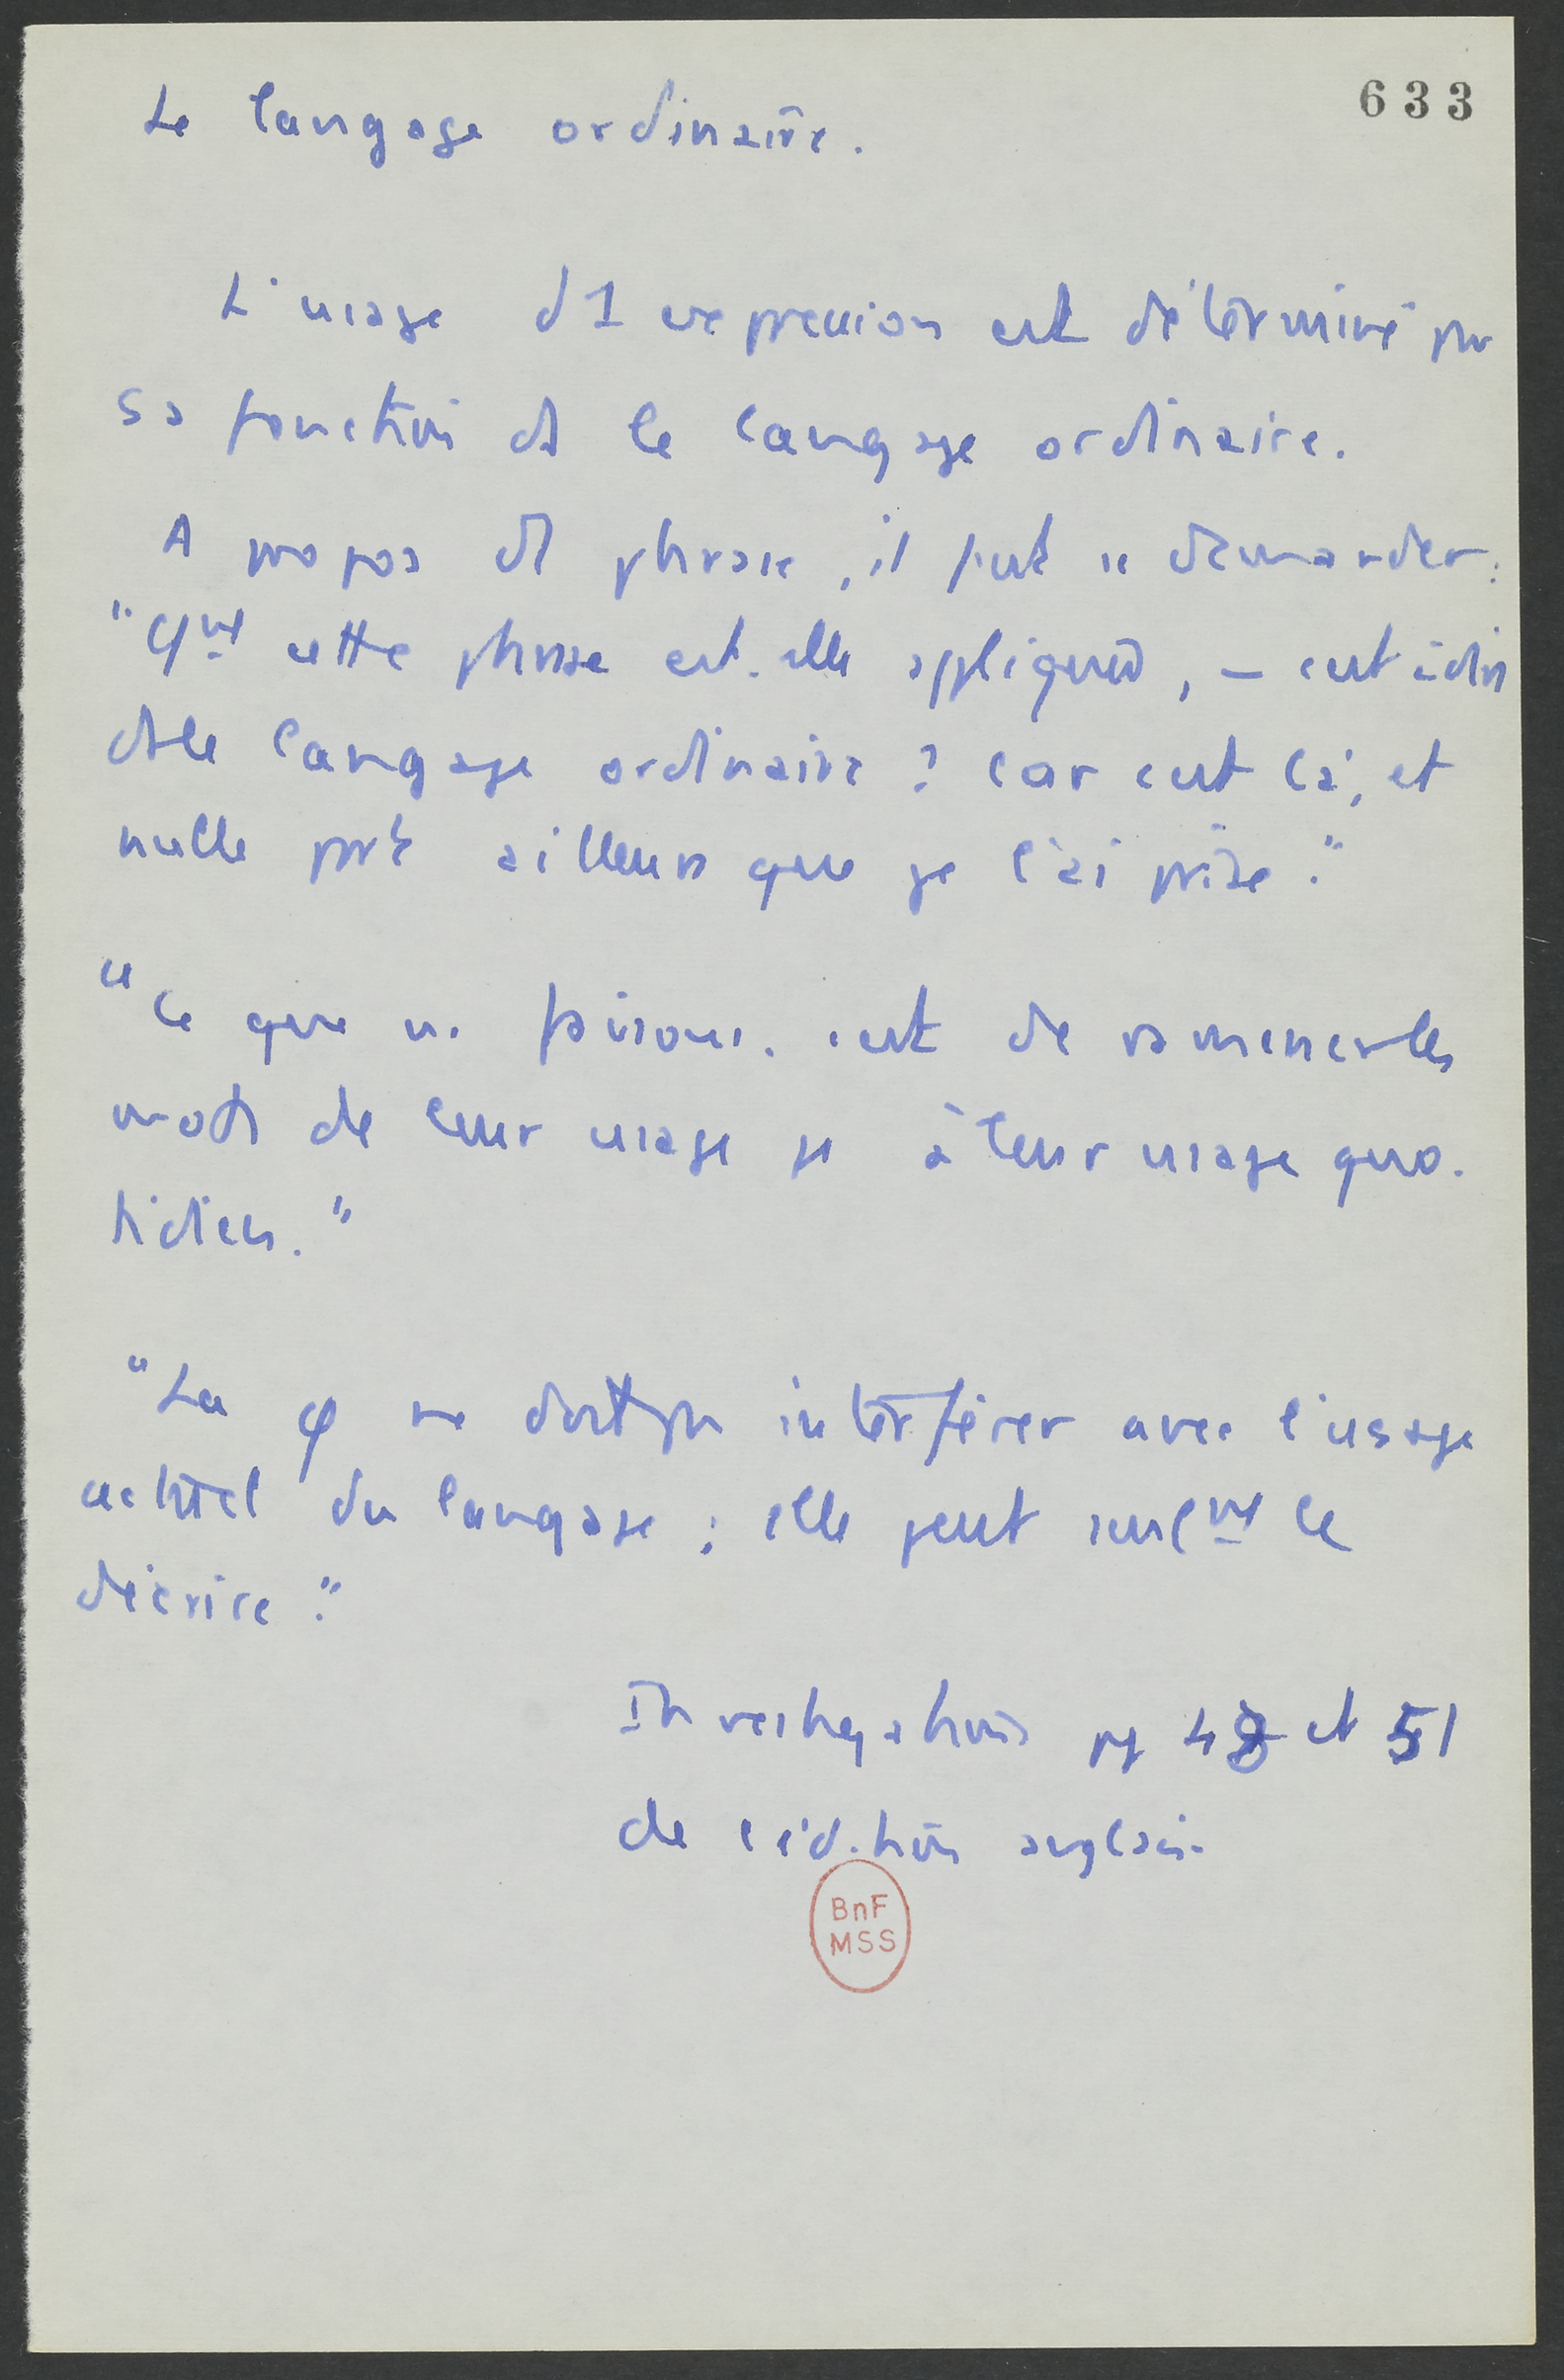 633
Le langage ordinaire.
L'usage d'1 expression est déterminé par
sa fonction ds le langage ordinaire.
A propos des phrases, il faut se demander :
"Qnd cette phrase est-elle appliquée, – c'est à dire
ds le langage ordinaire ? Car c'est là, et
nulle part ailleurs que je l'ai prise."
"Ce que ns. faisons. c'est de ramener les
mots de leur usage φ à leur usage quo-
tidien."
"La φ ne doit pas interférer avec l'usage
actuel du langage ; elle peut seulmt le
décrire."
Investigations pg 48 et 51
de l'édition anglaise
BnF
MSS